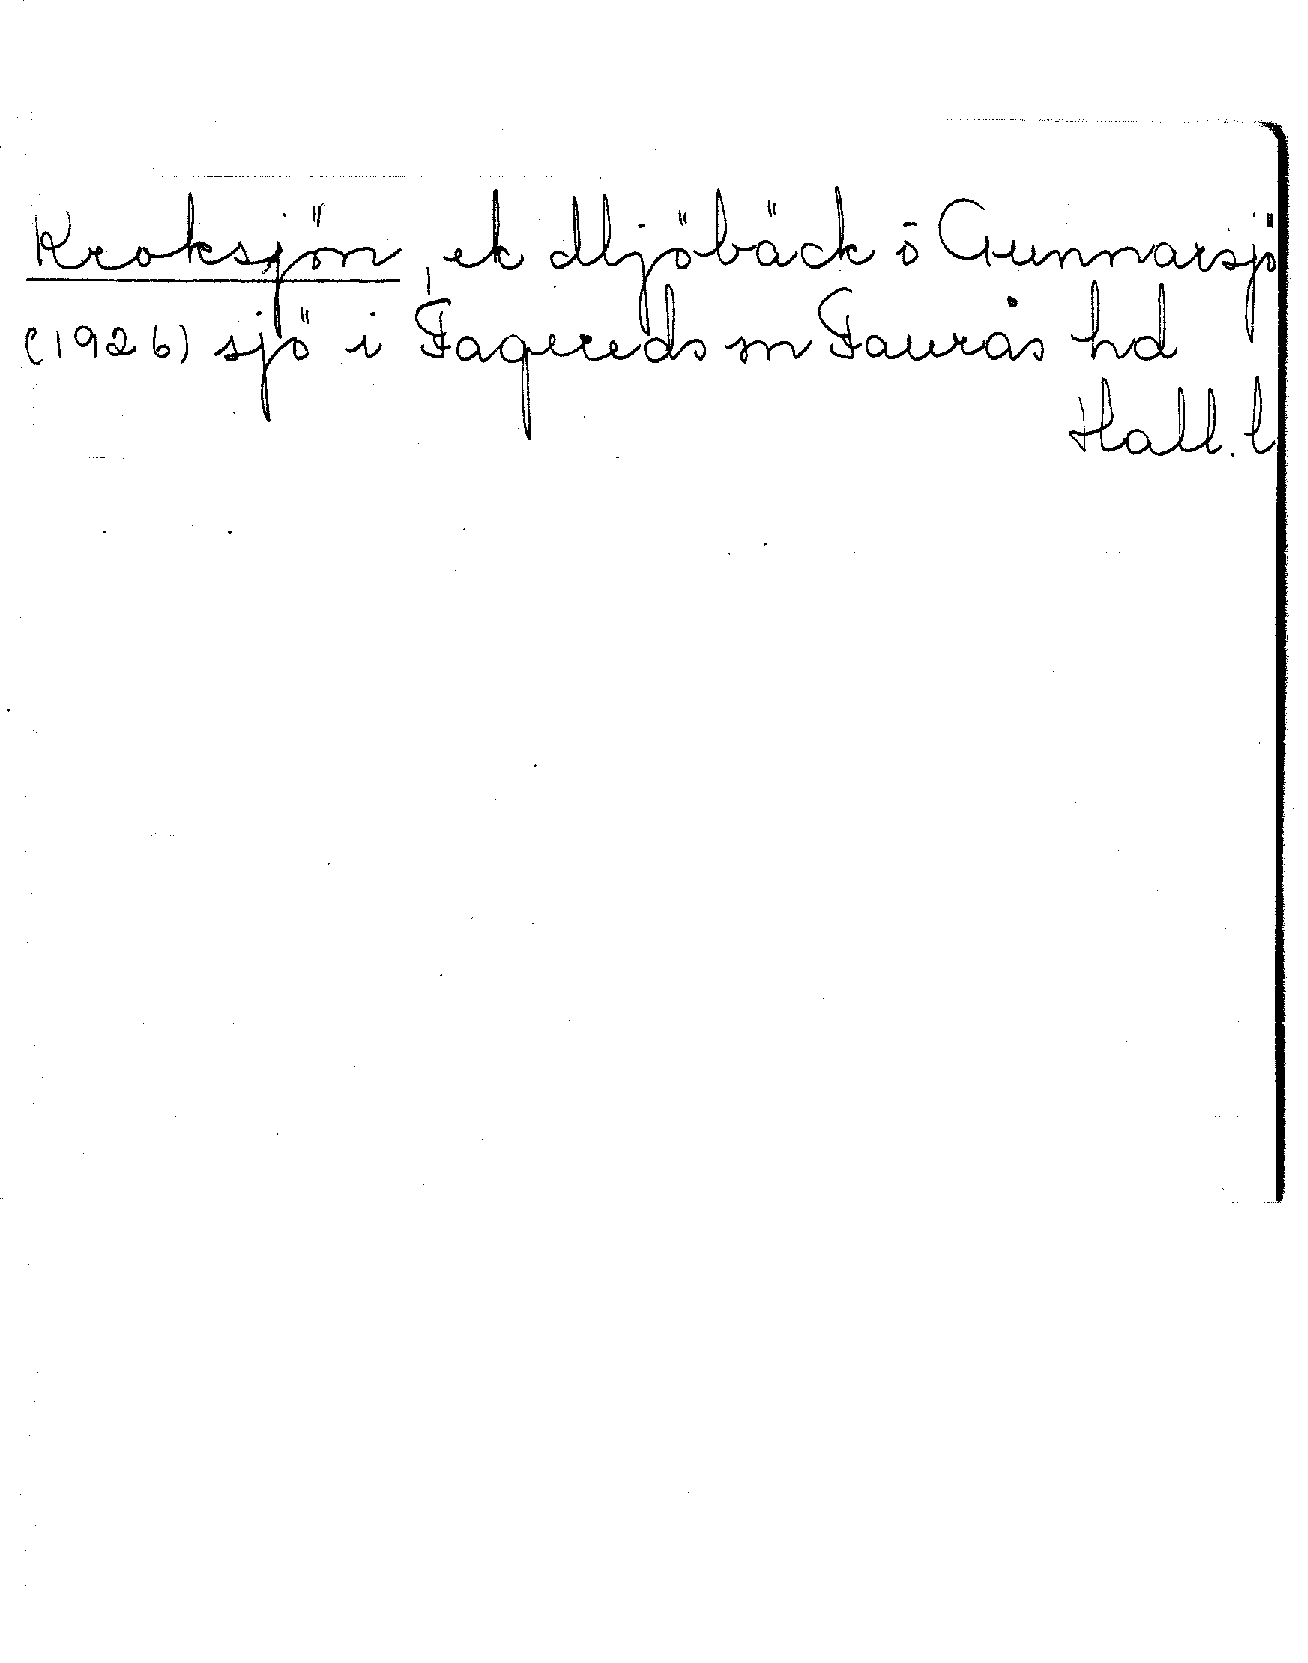 Kroksjön, ek Mjöbäck o Gunnarsjö
(1926) sjö i Fagereds sn Faurås hd
Hall. l